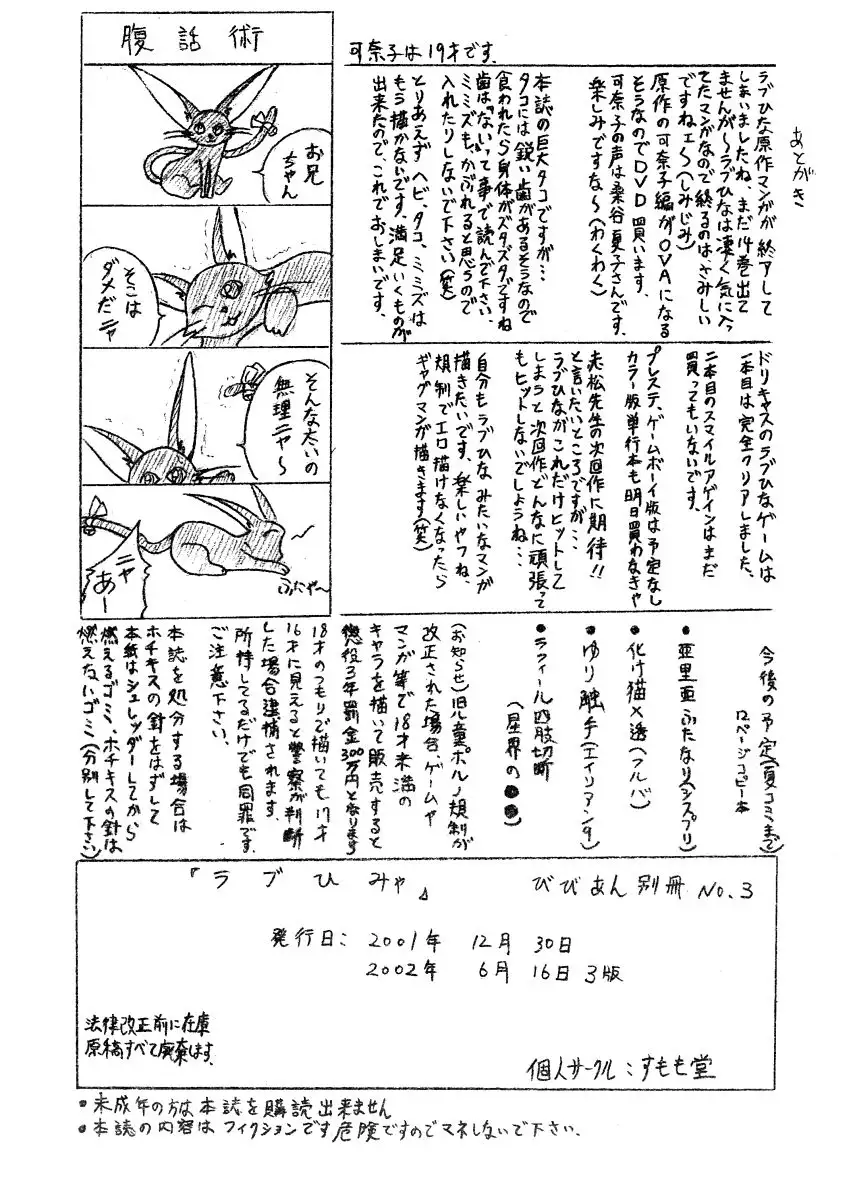 腹話術
お兄
ちゃん
そこは
ダメだニャ
そんな太いの
無理ニャ～
ふにゃ～
ニャ
あー
あとがき
可奈子は19才です。
ラブひな原作マンガが終アして
しまいましたね、まだ14巻出て
ませんが～ラブひなは凄く気に入っ
てたマンガなので終るのは、さみしい
ですねェ～(しみじみ)
原作の可奈子編がOVAになる
そうなのでDVD買います、
可奈子の声は桑谷夏子さんです、
楽しみですな～(わくわく)
本誌の巨大タコですが…
タコには鋭い歯があるそうなので
食われたら身体がズタズタですね
歯は「ない」って事で読んで下さい、
ミミズも、かぶれると思うので
入れたりしないで下さい(笑)
とりあえずヘビ、タコ、ミミズは
もう描かないです、満足いくものが
出来たので、これでおしまいです、
ドリキャスのラブひなゲームは
一本目は完全クリアしました、
二本目のスマイルアゲインはまだ
買ってもいないです、
プレステ、ゲームボーイ版は予定なし
カラー版単行本も明日買わなきゃ
赤松先生の次回作に期待!!
と言いたいところですが…
ラブひながこれだけヒットして
しまうと次回作、どんなに頑張って
もヒットしないでしょうね…
自分もラブひなみたいなマンガ
描きたいです、楽しいやつね、
規制でエロ描けなくなったら
ギャグマンが描きます(笑)
今後の予定(夏コミまで)
12ページコピー本
●亜里亜ふたなり(シスプリ)
●化け猫×透(フルバ)
●ゆり触手(エイリアン9)
●ラフィール四肢切断
(星界の●●)
(お知らせ)旧児童ポルノ規制が
改正された場合、ゲームや
マンガ等で18才未満の
キャラを描いて販売すると
懲役3年罰金300万円となります
18才のつもりで描いても17才
16才に見えると警察が判断
した場合逮捕されます、
所持してるだけでも同罪です、
ご注意下さい、
本誌を処分する場合は
ホチキスの針をはずして
本紙はシュレッダーしてから
燃えるゴミ、ホチキスの針は
燃えないゴミ(分別して下さい)
『ラブひみゃ』 びびあん別冊 No.3
発行日: 2001年 12月 30日
2002年 6月 16日 3版
法律改正前に在庫
原稿すべて廃棄します。
個人サークル:すもも堂
●未成年の方は本誌を購読出来ません
●本誌の内容はフィクションです危険ですのでマネしないで下さい、